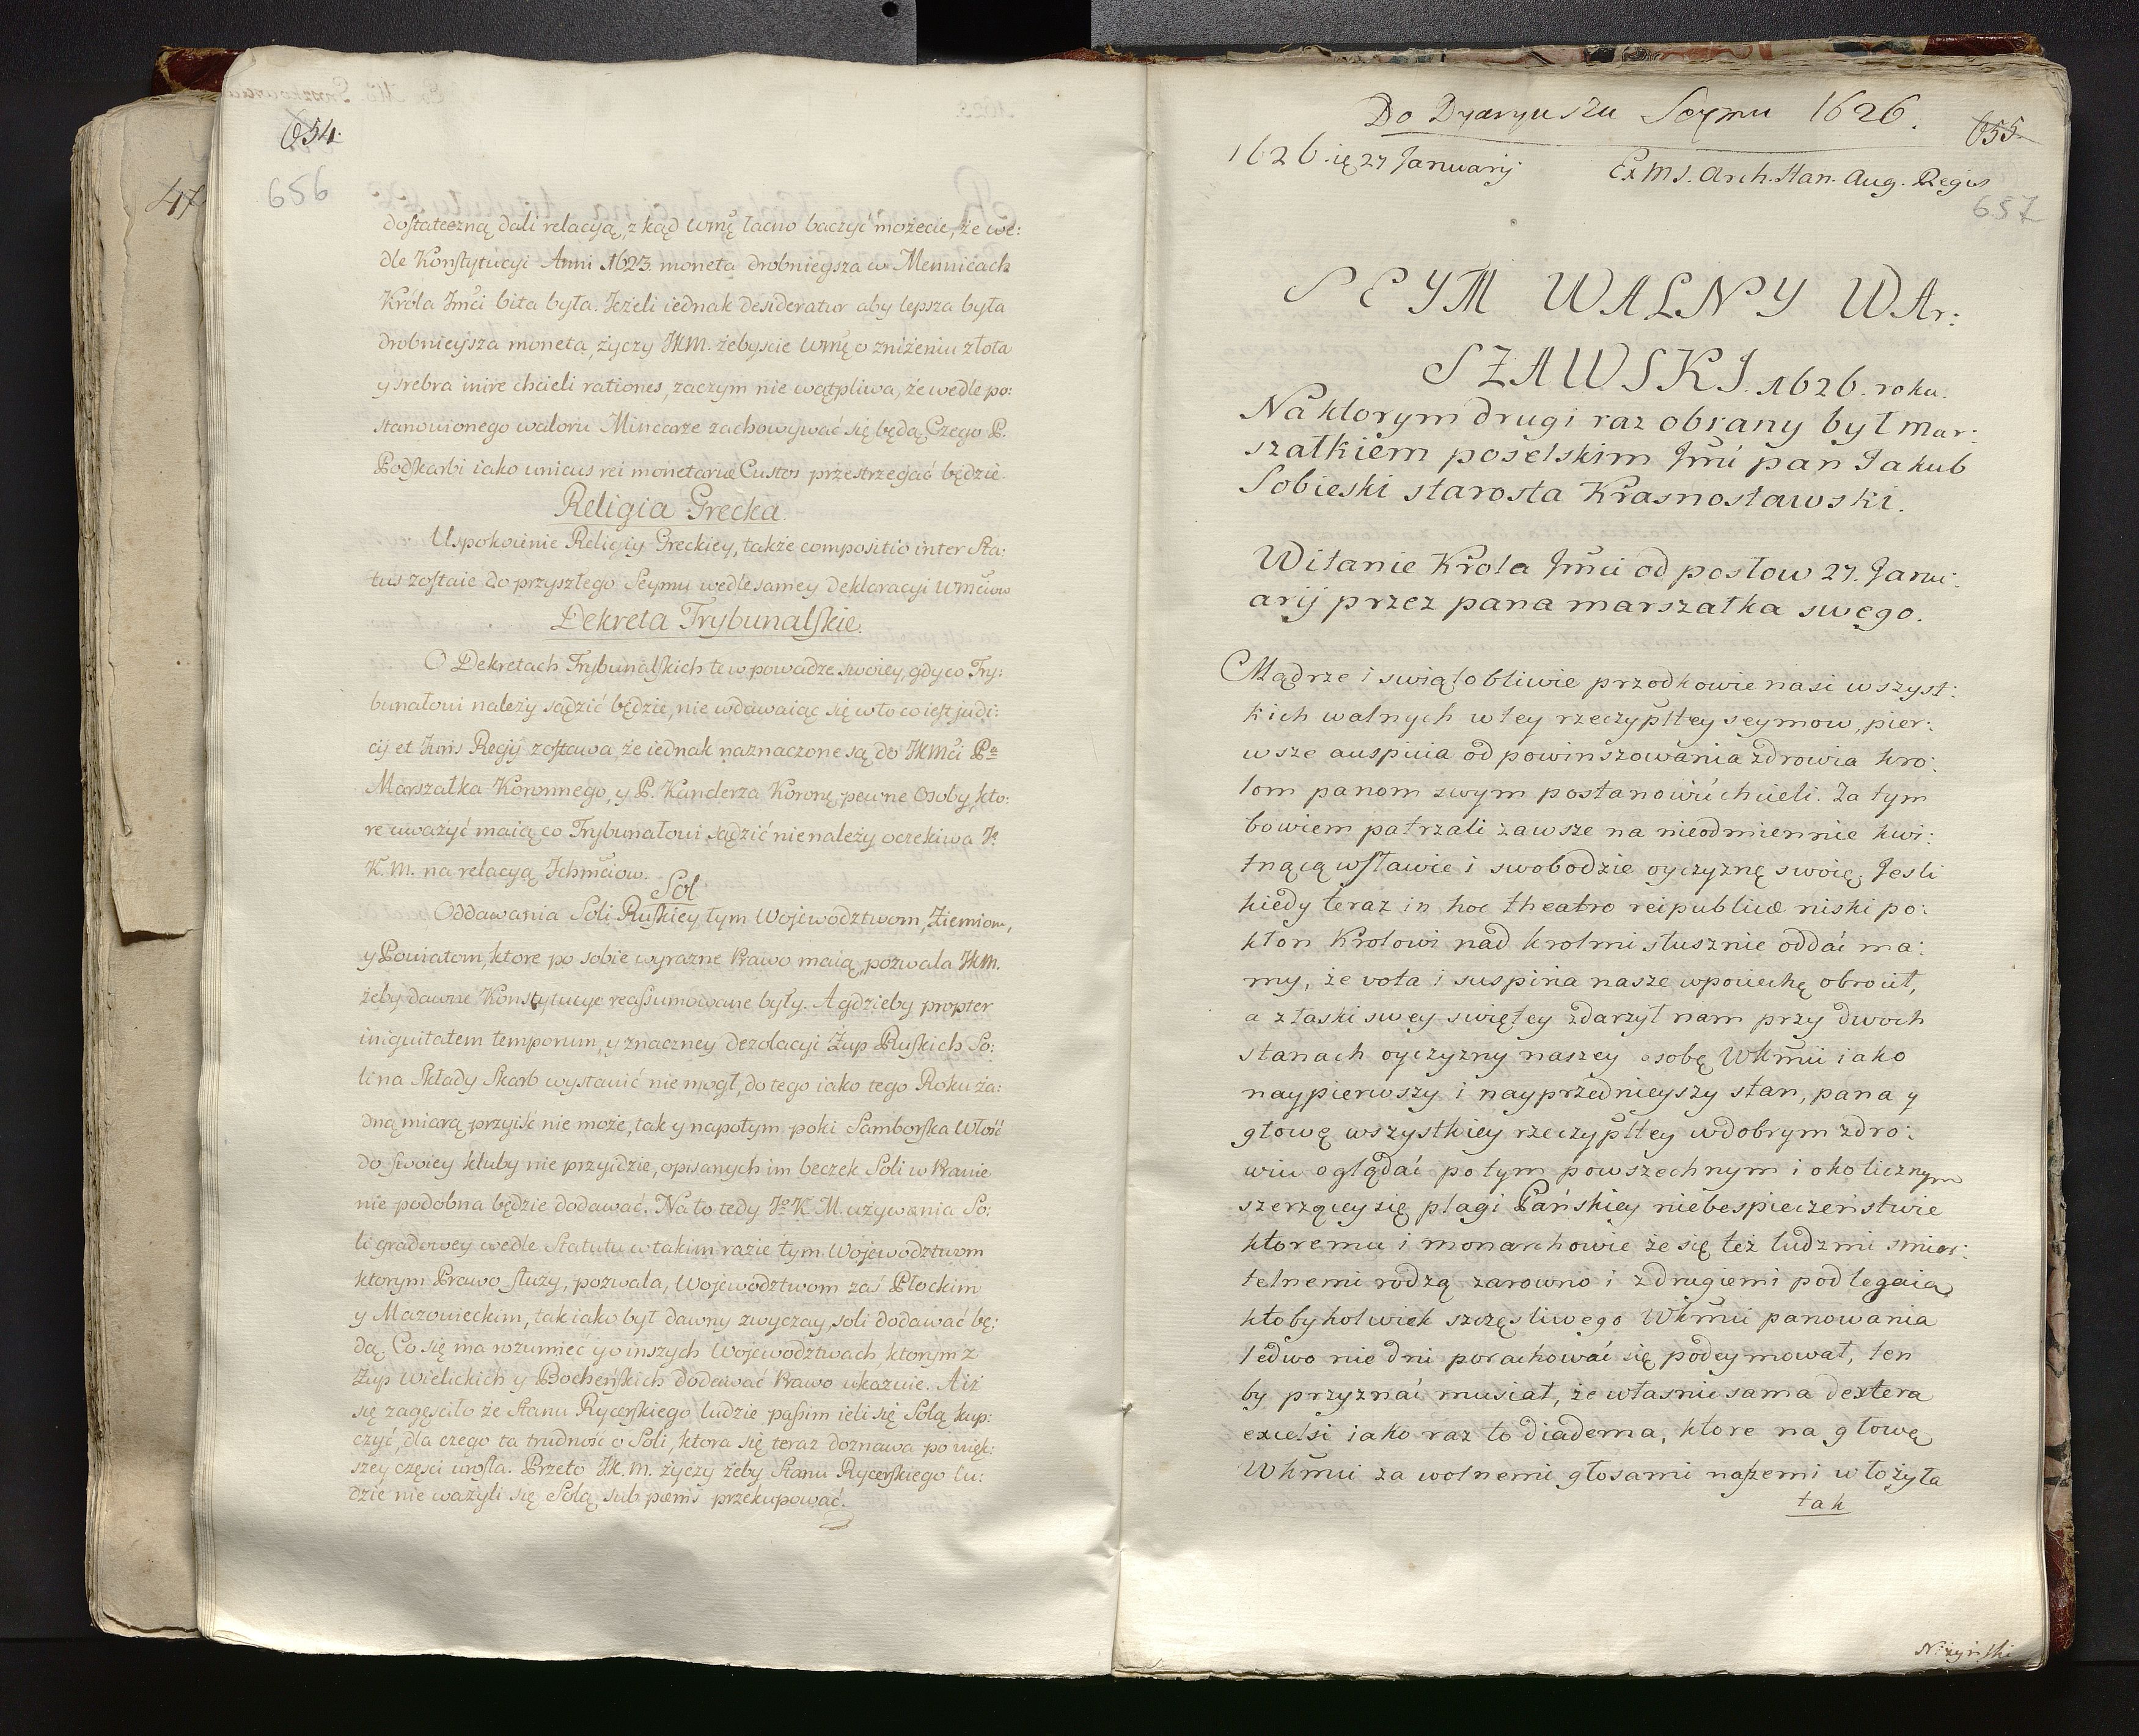 654.
656
dostateczną dali relacyją, z kąd Wmę łacno baczyć możecie, że we:
dle Konstytucyi Anni 1623. moneta drobnieysza w Mennicach
Króla Jmci bita była. Jeżeli iednak desideratur aby lepsza była
drobnieysza moneta, życzy JKM. żebyscie Wmę o zniżeniu złota
y srebra inire chcieli rationes, zaczym nie wątpliwa, że wedle po:
stanowionego waloru Mincarze zachowywać się będą. Czego P.
Podskarbi iako unicus rei monetariæ Custos przestrzegać będzie.
Religia Grecka.
Uspokoienie Religiy Greckiey, także compositio inter Sta:
tus zostaie do przyszłego Seymu wedle samey deklaracyi Wmciow
Dekreta Trybunalskie.
O Dekretach Trybunalskich te w powadze swoiey, gdy co Try:
bunałowi należy sądzić będzie, nie wdawaiąc się w to co iest judi:
cij et Juris Regij zostawa, że iednak naznaczone są do JKMci Pa
Marszałka Koronnego, y P. Kanclerza Koronę, pewne Osoby, kto:
re uważyć maią co Trybunałowi sądzić nie należy, oczekiwa J.
K. M. na relacyją Ichmciow.
Sol
Oddawania Soli Ruskiey tym Wojewodztwom, Ziemiom,
y Powiatom, ktore po sobie wyrazne Prawo maią, pozwala JKM.
żeby dawne Konstytucye reassumowane były. A gdzieby propter
iniquitatem temporum, y znaczney dezolacyi Żup Ruskich So:
li na Składy Skarb wystawić nie mogł, do tego iako tego Roku ża:
dną miarą przyiść nie może, tak y napotym poki Samborska Włość
do swoiey kluby nie przyidzie, opisanych im beczek Soli w Prawie
nie podobna będzie dodawać. Na to tedy Jo K M. używania So:
li gradowey wedle Statutu w takim razie tym Wojewodztwom
ktorym Prawo służy, pozwala, Wojewodztwom zaś Płockim
y Mazowieckim, tak iako był dawny zwyczay, soli dodawać bę:
dą. Co się ma rozumieć y o inszych Wojewodztwach, ktorym z
Żup Wielickich y Bocheńskich dodawać Prawo ukazuie. A iż
się zagęsciło że Stanu Rycerskiego ludzie passim ieli się Solą kup:
czyć, dla czego ta trudność o Soli, ktora się teraz doznawa po więk:
szey części urosła. Przeto JK. M. życzy żeby Stanu Rycerskiego lu:
dzie nie ważyli się Solą sub pœnis przekupować.
Do Dyaryuszu Seymu 1626.
655.
1626 ię 27 Januarij
Ex MS. Arch. Stan. Aug. Regis
657
SEYM WALNY WAr:
SZAWSKI. 1626. roku.
Na ktorym drugi raz obrany był mar:
szałkiem poselskim Jmć pan Jakub
Sobieski starosta Krasnostawski.
Witanie Krola Jmci od posłow 27. Janu:
arij przez pana marszałka swego.
Mądrze i swiątobliwie przodkowie nasi wszyst:
kich walnych w tey rzeczypltey seymow, pier:
wsze auspicia od powinszowania zdrowia kro:
lom panom swym postanowić chcieli. Za tym
bowiem patrzali zawsze na nieodmiennie kwi:
tnącą w sławie i swobodzie oyczyznę swoię. Jesli
kiedy teraz in hoc theatro reipublicæ niski po:
kłon Krolowi nad krolmi słusznie oddać ma:
my, że vota i suspiria nasze w pociechę obrocił,
a z łaski swey swiętey zdarzył nam przy dwoch
stanach oyczyzny naszey osobę WKmci iako
naypierwszy i nayprzednieyszy stan, pana y
głowę wszystkiey rzeczypltey w dobrym zdro:
wiu oglądać po tym powszechnym i okolicznym
szerzącey się plagi Pańskiey niebespieczeństwie
ktoremu i monarchowie że się też ludzmi smier:
telnemi rodzą zarowno i z drugiemi podlegaią
ktobykolwiek szczęsliwego WKmci panowania
ledwo nie dni porachować się podeymował, ten
by przyznać musiał, że własnie sama dextera
excelsi iako raz to diadema, ktore na głowę
WKmci za wolnemi głosami naszemi włożyła
tak
Niżyński